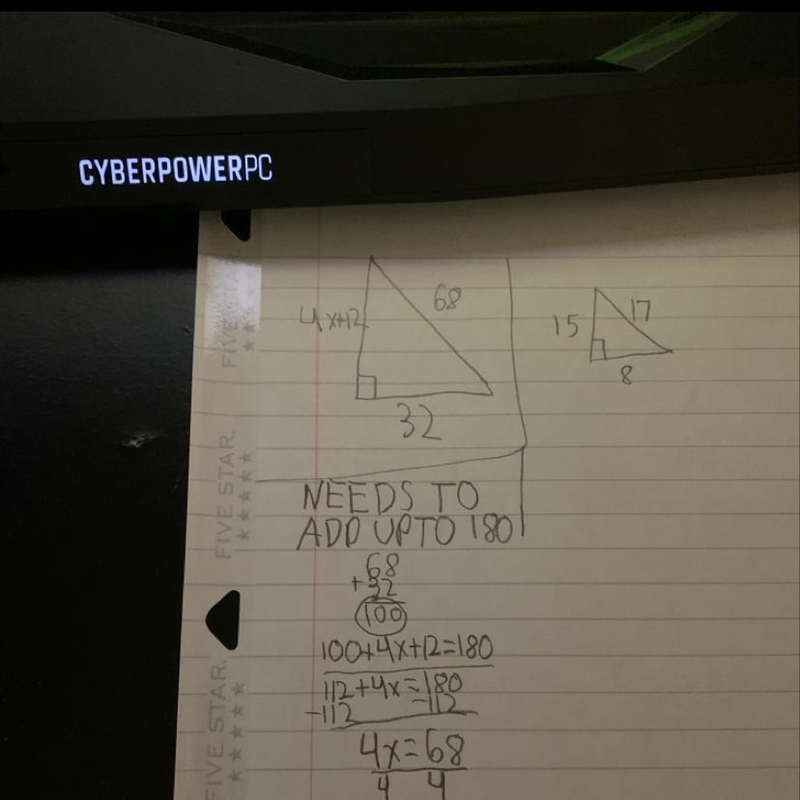 CYBERPOWERPC
4x+12
68
32
15
17
8
FIVE STAR.
FIVE STAR.
FIVE STAR.
NEEDS TO
ADD UPTO 180
68
+32
100
100+4x+12=180
112+4x=180
-112 -112
4x=68
4 4